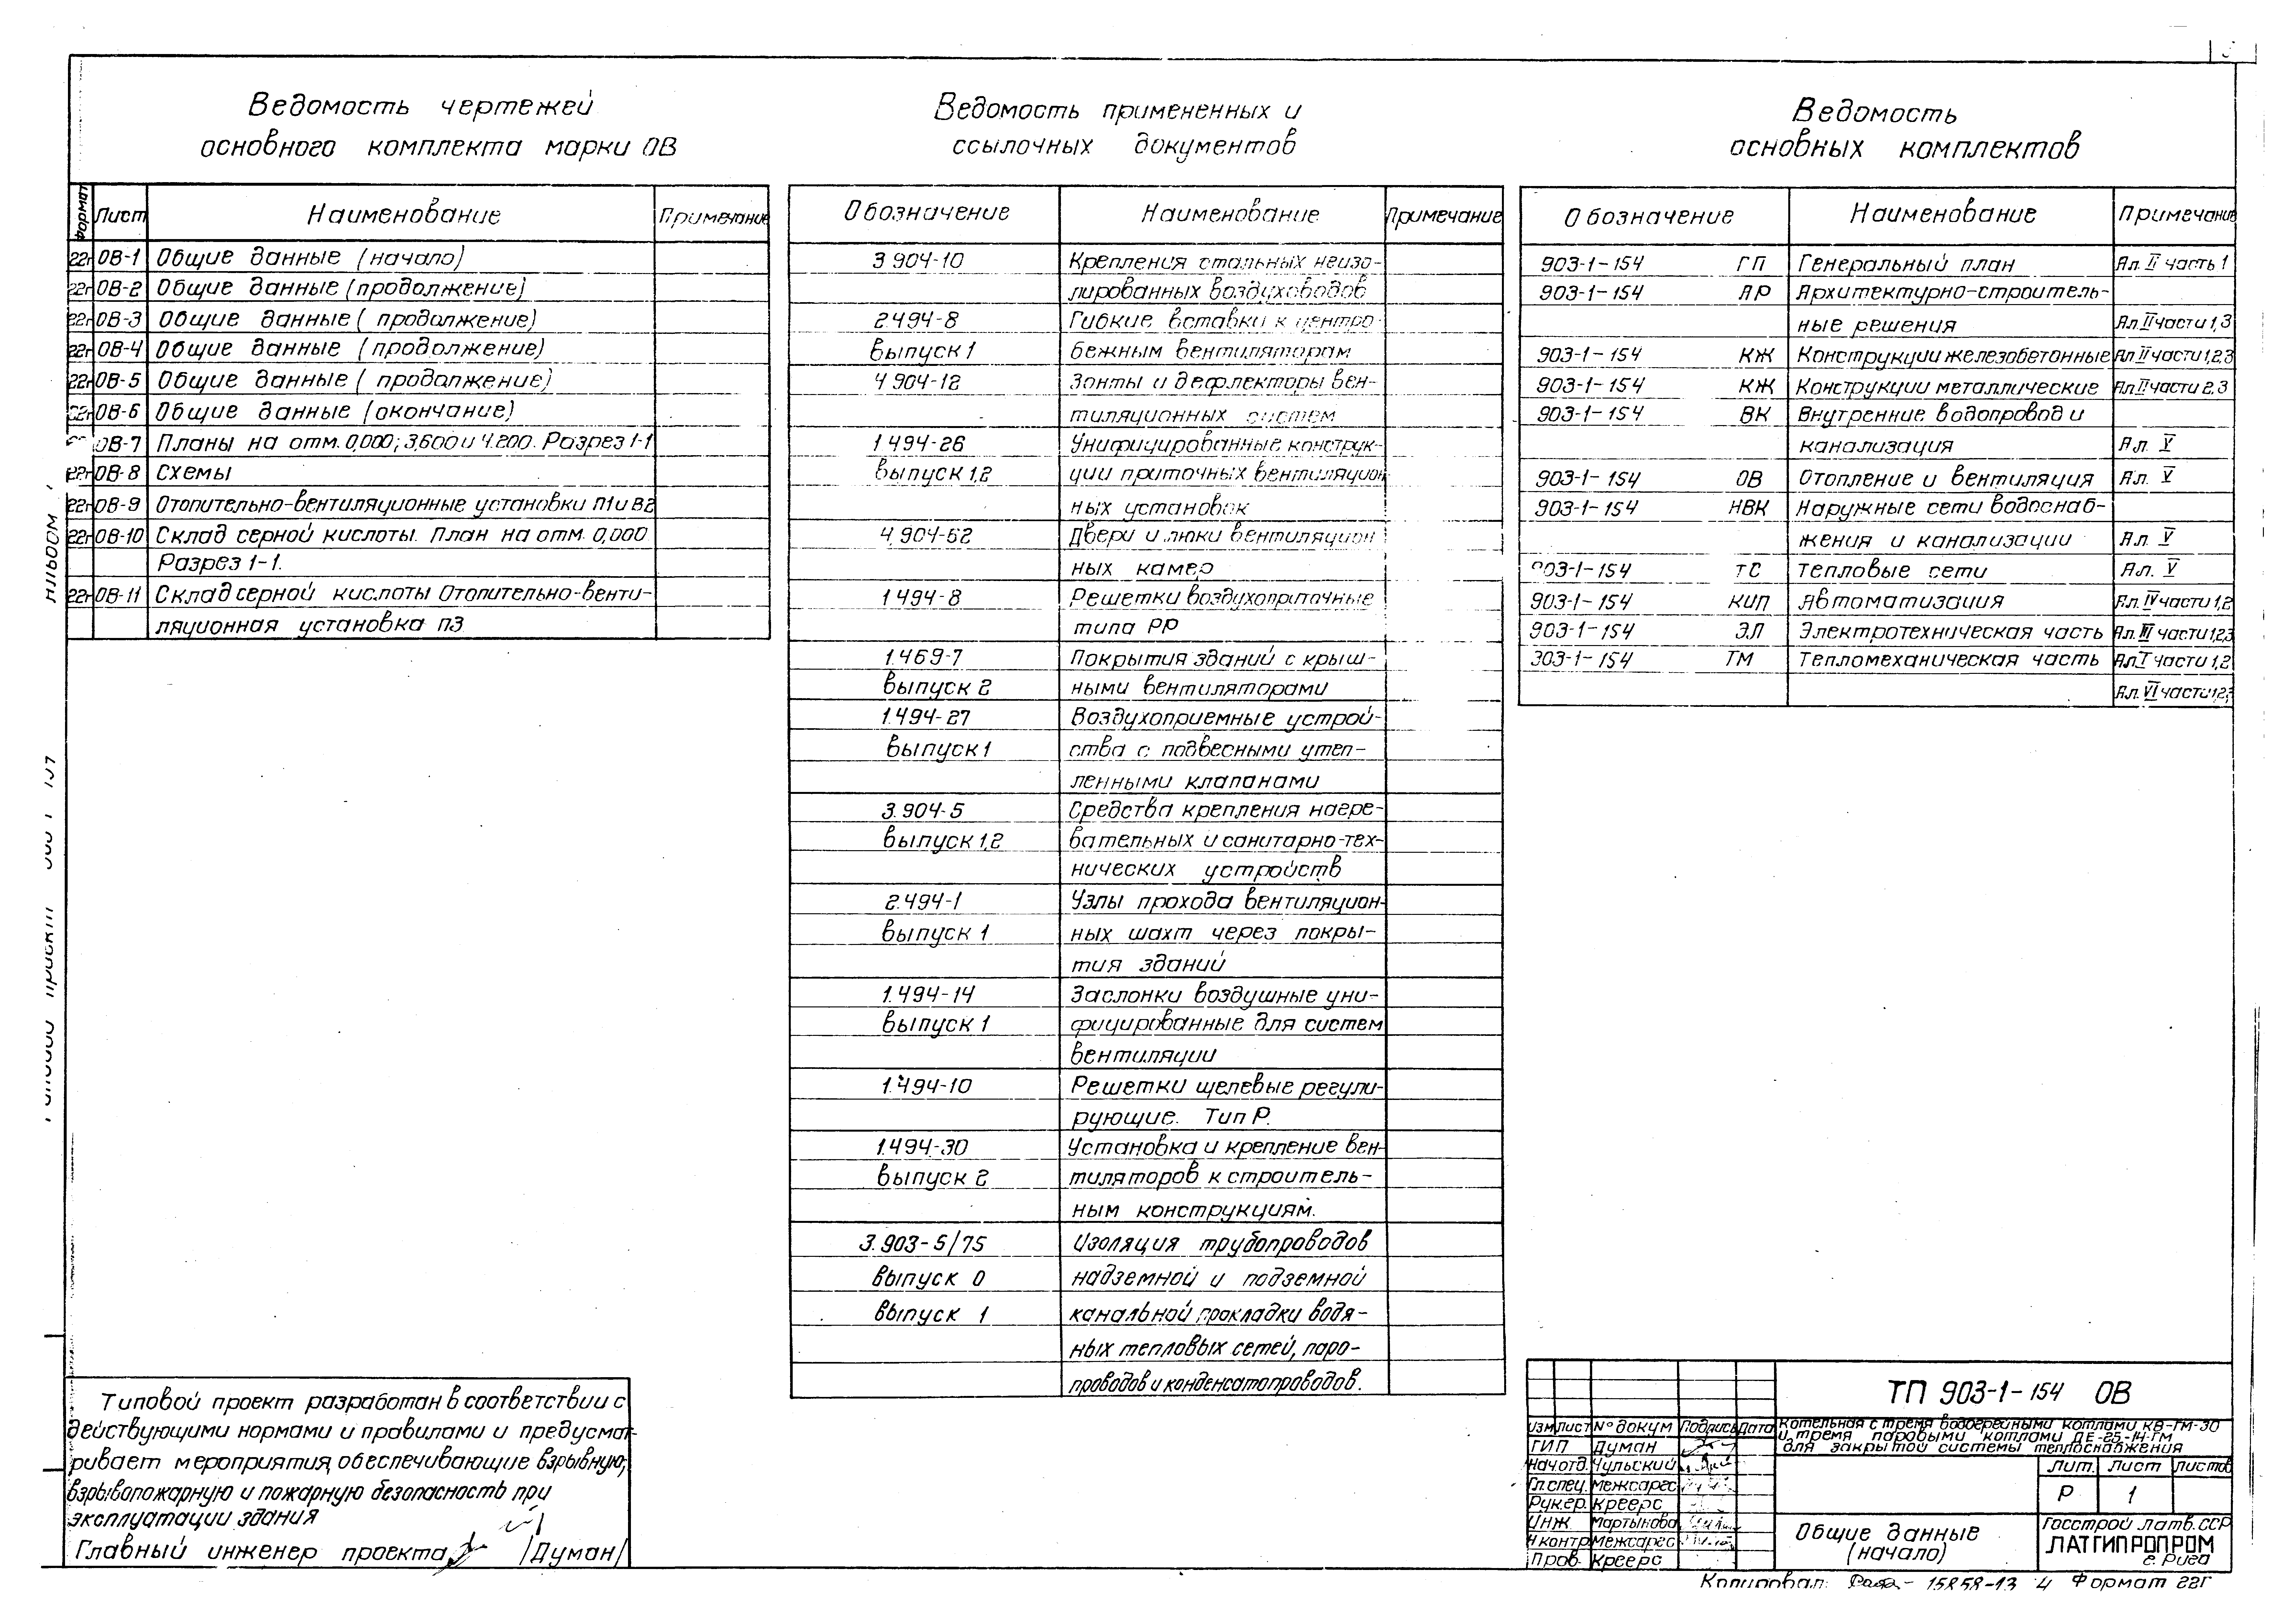 Ведомость чертежей
основного комплекта марки ОВ
Формат Лист Наименование Примечание
22г ОВ-1 Общие данные (начало)
22г ОВ-2 Общие данные (продолжение)
22г ОВ-3 Общие данные (продолжение)
22г ОВ-4 Общие данные (продолжение)
22г ОВ-5 Общие данные (продолжение)
22г ОВ-6 Общие данные (окончание)
ОВ-7 Планы на отм. 0,000; 3,600 и 4.200. Разрез 1-1
22г ОВ-8 Схемы
22г ОВ-9 Отопительно-вентиляционные установки П1 и В2
22г ОВ-10 Склад серной кислоты. План на отм. 0,000
Разрез 1-1.
22г ОВ-11 Склад серной кислоты Отопительно-венти-
ляционная установка П3
Ведомость примененных и
ссылочных документов
Обозначение Наименование Примечание
3 904-10 Крепления стальных неизо-
лированных воздуховодов
2.494-8 Гибкие вставки к центро-
выпуск 1 бежным вентиляторам
4 904-12 Зонты и дефлекторы вен-
тиляционных систем
1 494-26 Унифицированные конструк-
выпуск 1,2 ции приточных вентиляцион
ных установок
4.904-62 Двери и люки вентиляцион
ных камер
1 494-8 Решетки воздухоприточные
типа РР
1.469-7 Покрытия зданий с крыш-
выпуск 2 ными вентиляторами
1.494-27 Воздухоприемные устрой-
выпуск 1 ства с подвесными утеп-
ленными клапанами
3.904-5 Средства крепления нагре-
выпуск 1,2 вательных и санитарно-тех-
нических устройств
2.494-1 Узлы прохода вентиляцион-
выпуск 1 ных шахт через покры-
тия зданий
1.494-14 Заслонки воздушные уни-
выпуск 1 фицированные для систем
вентиляции
1.494-10 Решетки щелевые регули-
рующие. Тип Р.
1.494-30 Установка и крепление вен-
выпуск 2 тиляторов к строитель-
ным конструкциям.
3.903-5/75 Изоляция трубопроводов
выпуск 0 надземной и подземной
выпуск 1 канальной прокладки водя-
ных тепловых сетей, паро-
проводов и конденсатопроводов.
Ведомость
основных комплектов
Обозначение Наименование Примечание
903-1-154 ГП Генеральный план Ал. II часть 1
903-1-154 АР Архитектурно-строитель-
ные решения Ал. II части 1,3
903-1-154 КЖ Конструкции железобетонные Ал. II части 1,2,3
903-1-154 КЖ Конструкции металлические Ал. II части 2,3
903-1-154 ВК Внутренние водопровод и
канализация Ал. V
903-1-154 ОВ Отопление и вентиляция Ал. V
903-1-154 НВК Наружные сети водоснаб-
жения и канализации Ал. V
903-1-154 ТС Тепловые сети Ал. V
903-1-154 КИП Автоматизация Ал. IV части 1,2
903-1-154 ЭЛ Электротехническая часть Ал. III части 1,2,3
903-1-154 ТМ Тепломеханическая часть Ал. I части 1,2
Ал. VI части 1,2,3
Типовой проект разработан в соответствии с
действующими нормами и правилами и предусмат-
ривает мероприятия, обеспечивающие взрывную,
взрывопожарную и пожарную безопасность при
эксплуатации здания
Главный инженер проекта /Думан/
ТП 903-1-154 ОВ
Изм Лист N° докум Подпись Дата
Котельная с тремя водогрейными котлами КВ-ГМ-30
и тремя паровыми котлами ДЕ-25-14-ГМ
для закрытой системы теплоснабжения
ГИП Думан
Нач отд. Чульский
Гл. спец. Межсарес
Рук.гр. Креерс
Инж Мартынова
Н контр Межсарес
Пров. Креерс
Лит. Лист Листов
Р 1
Общие данные
(начало)
Госстрой Латв. ССР
ЛАТГИПРОПРОМ
г. Рига
Копировал: 15858-13 4 Формат 22Г
Альбом
Типовой проект 903-1-154